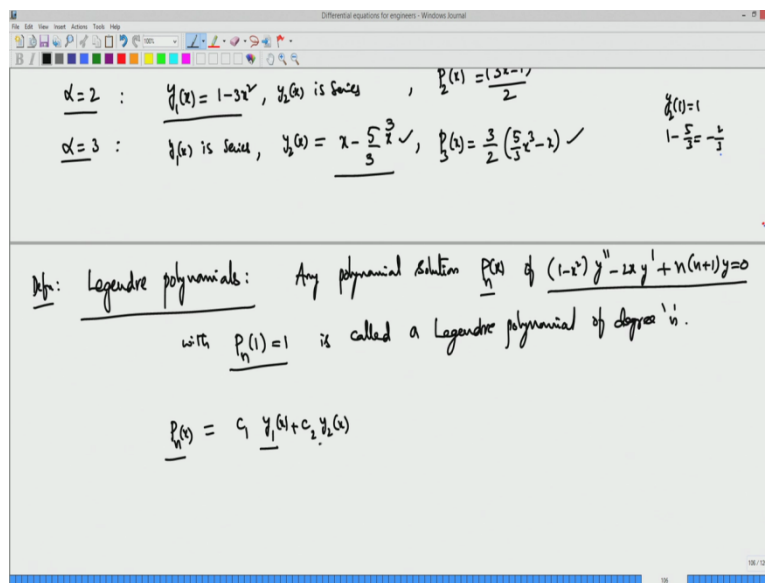 Differential equations for engineers - Windows Journal
File Edit View Insert Actions Tools Help
α=2 : y₁(x) = 1-3x², y₂(x) is Series , P₂(x) = (3x²-1)/2
y₂(1)=1
α=3 : y₁(x) is Series, y₂(x) = x - 5/3 x³ ✓, P₃(x) = 3/2 (5/3 x³ - x) ✓
1 - 5/3 = -2/3
Defn: Legendre polynomials: Any polynomial solution Pₙ(x) of (1-x²) y'' - 2x y' + n(n+1)y=0
with Pₙ(1)=1 is called a Legendre polynomial of degree 'n'.
Pₙ(x) = C₁ y₁(x) + C₂ y₂(x)
106